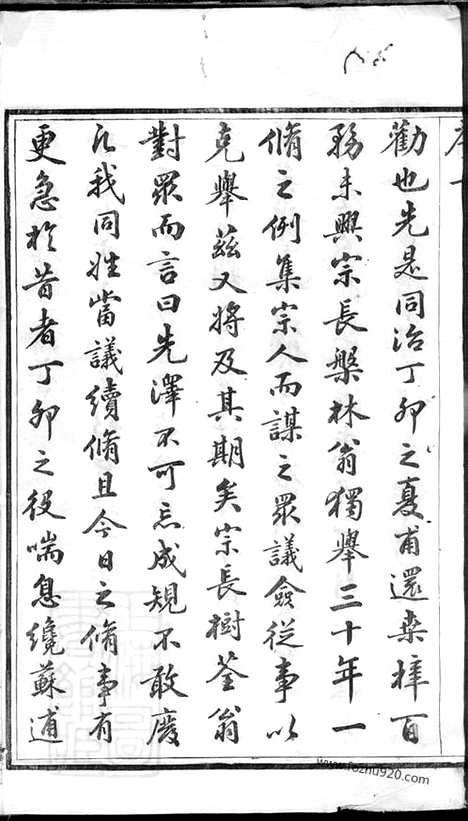 序一
勸也先是同治丁卯之夏甫還桑梓百
務未興宗長槃林翁獨舉三十年一
脩之例集宗人而謀之眾議僉從事以
克舉茲又將及其期矣宗長樹荃翁
對眾而言曰先澤不可忘成規不敢廢
凡我同姓當議續脩且今日之脩事有
更急於昔者丁卯之役喘息纔蘇逋
www.fozhu920.com